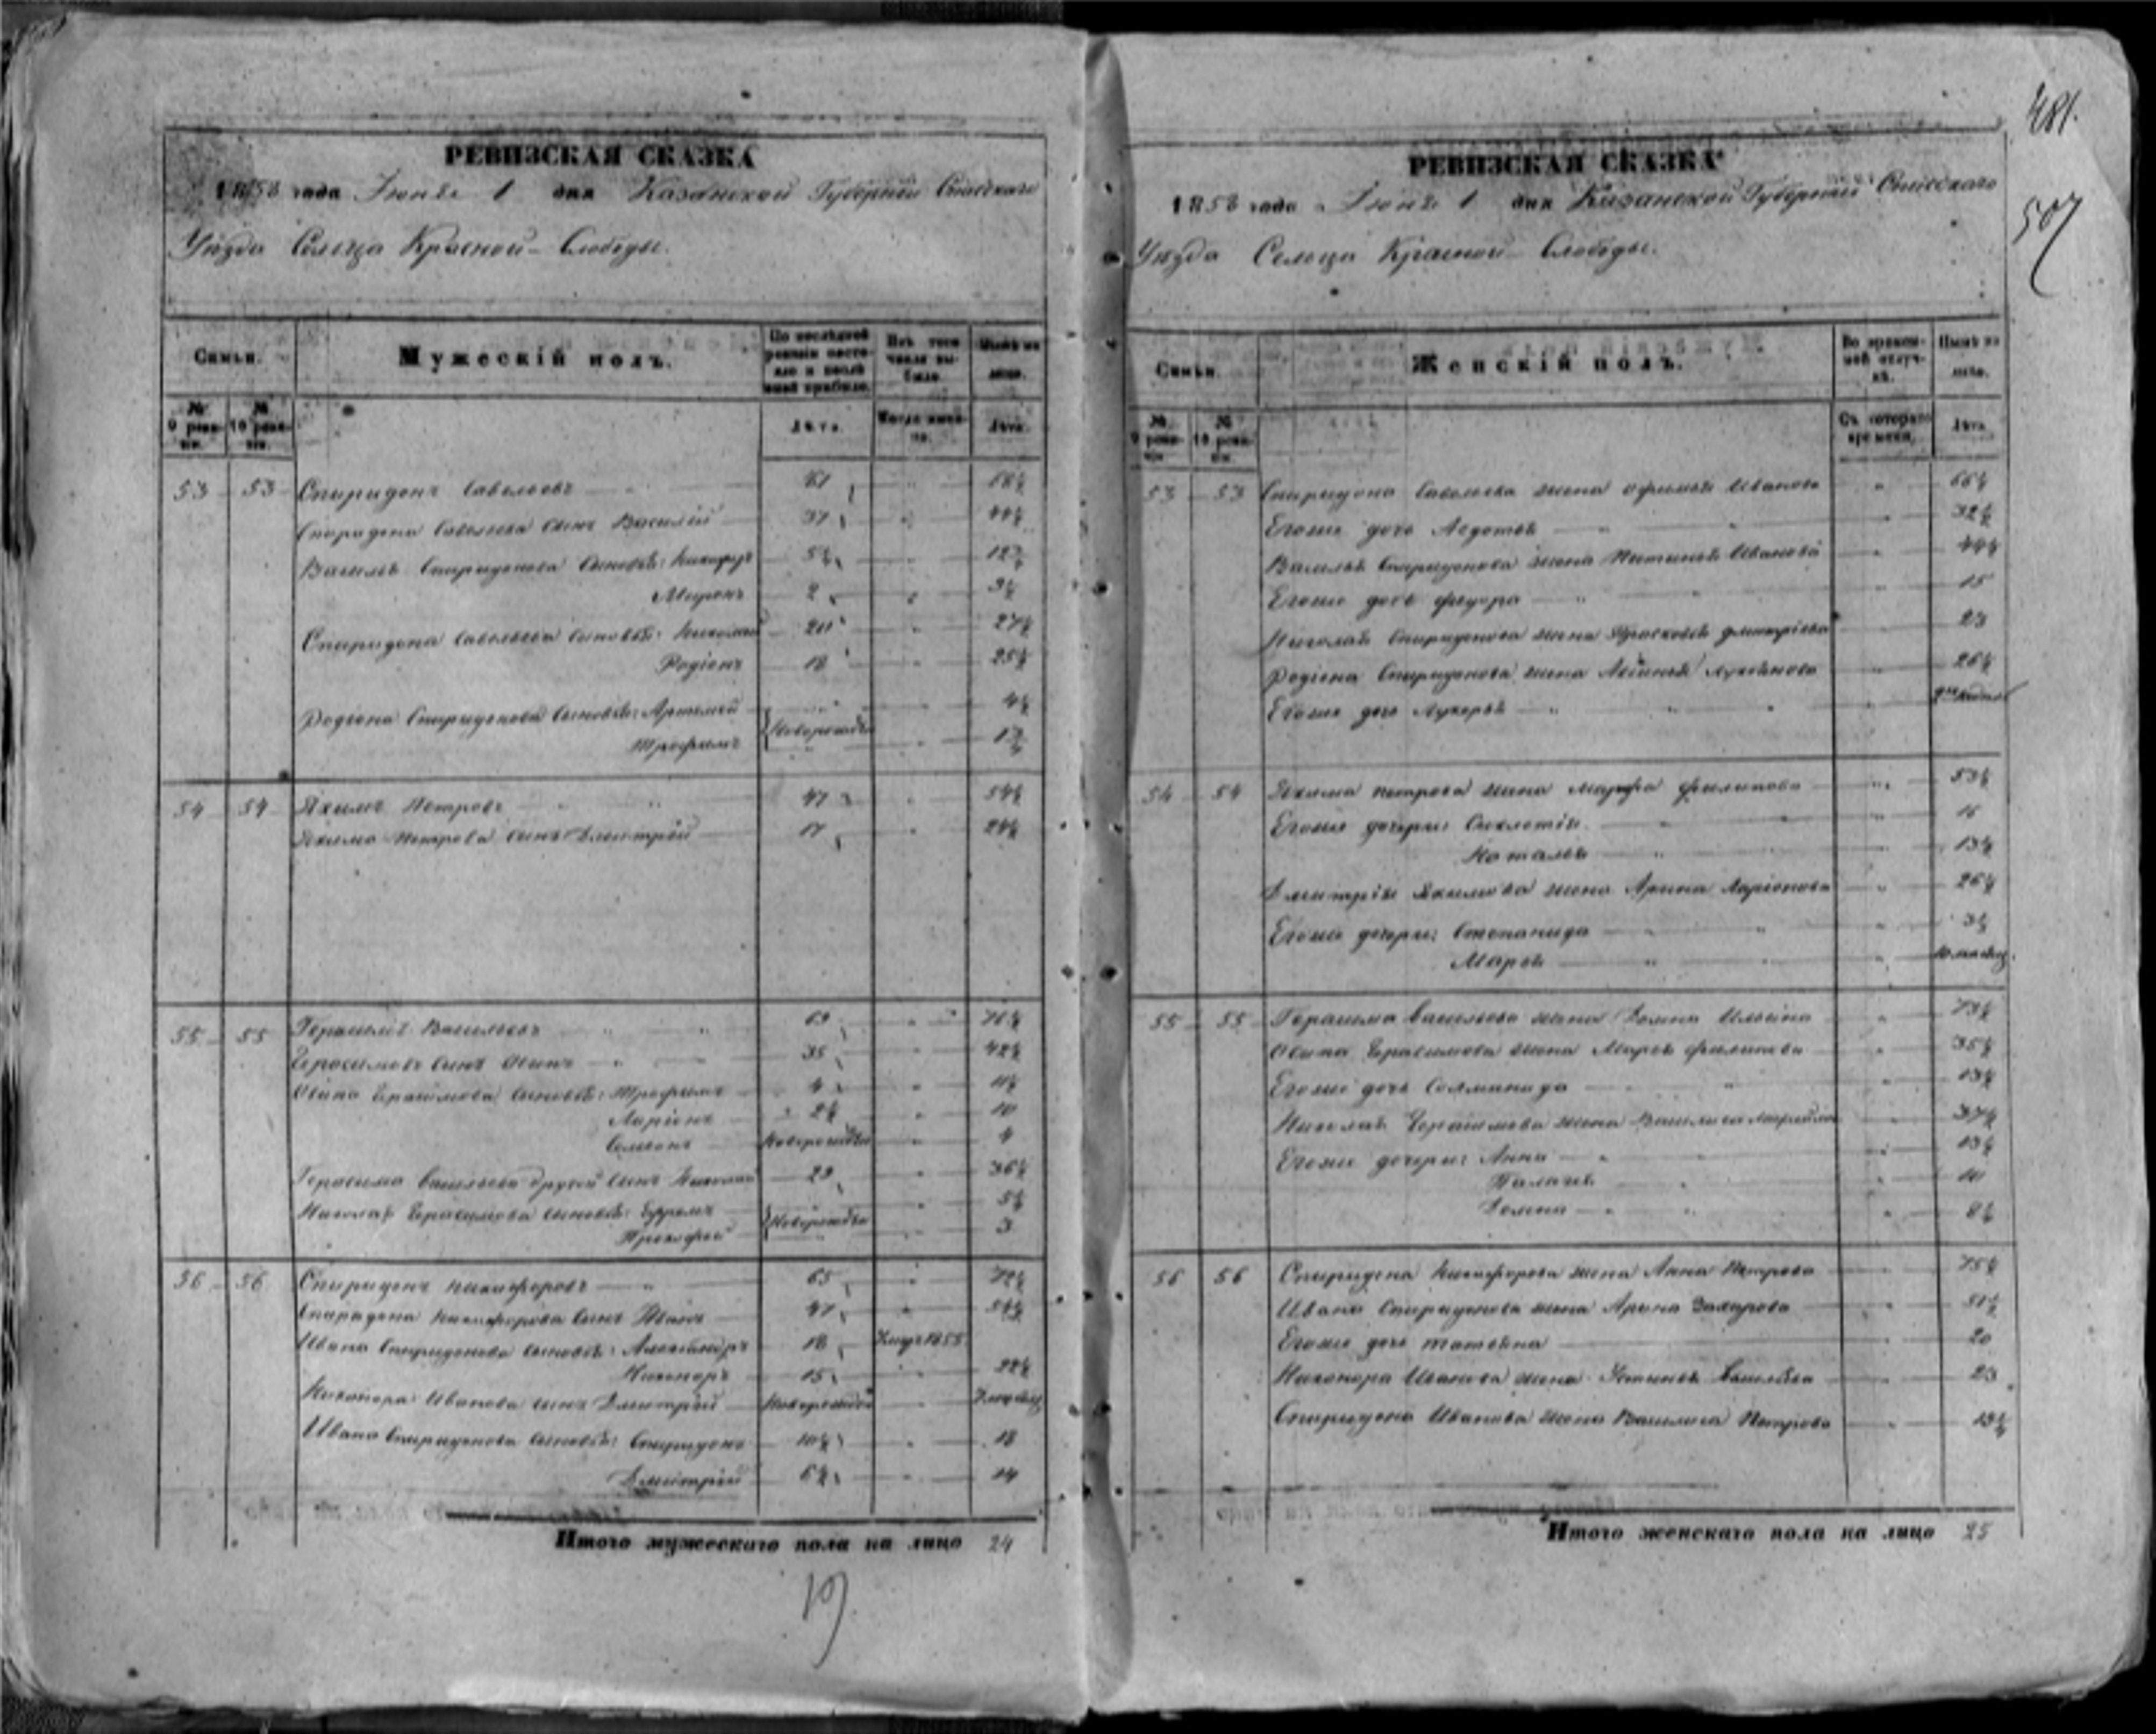 РЕВИЗСКАЯ СКАЗКА
1858 года Июня 1 дня Казанской Губернии Спасскаго
Уѣзда Сельца Красной-Слободы.
Семьи.
Мужескій полъ.
По послѣдней ревизіи состояло и послѣ оной прибыло.
Изъ того числа выбыло.
Нынѣ на лицо.
№ 9 ревизіи.
№ 10 ревизіи.
Лѣта.
Когда именно.
Лѣта.
53 53 Спиридонъ Савельевъ 61 68½
Спиридона Савельева сынъ Василій 37 44½
Василья Спиридонова сыновья: Никифоръ 5½ 12½
Миронъ 2 9½
Спиридона Савельева сыновья: Николай 20 27½
Родіонъ 18 25½
Родіона Спиридонова сыновья: Артемей 4½
Трофимъ новорожден 1½
54 54 Якимъ Петровъ 47 54½
Якима Петрова сынъ Дмитрій 17 24½
55 55 Герасимъ Васильевъ 69 76½
Герасимовъ сынъ Осипъ 35 42½
Осипа Герасимова сыновья: Трофимъ 4 11½
Ларіонъ 2½ 10
Семенъ новорожден 4
Герасима Васильева другой сынъ Николай 29 36½
Николая Герасимова сыновья: Ефремъ 5½
Прокофей новорожден 3
56 56 Спиридонъ Никифоровъ 65 72½
Спиридона Никифорова сынъ Иванъ 47 54½
Ивана Спиридонова сыновья: Александръ 18 1855
Никоноръ 15 22½
Никонора Иванова сынъ Дмитрій новорожден
Ивана Спиридонова сыновья: Спиридонъ 10½ 18
Дмитрій 6½ 14
Итого мужескаго пола на лицо 24
19
481.
507
РЕВИЗСКАЯ СКАЗКА
1858 года Июня 1 дня Казанской Губерніи Спасскаго
Уѣзда Сельца Красной Слободы.
Семьи.
Женскій полъ.
Во временной отлучкѣ.
Нынѣ на лицо.
№ 9 ревизіи.
№ 10 ревизіи.
Съ котораго времени.
Лѣта.
53 53 Спиридона Савельева жена Офимья Иванова 66½
Егоже дочь Авдотья 32½
Василья Спиридонова жена Устинья Иванова 44½
Егоже дочь Федора 15
Николая Спиридонова жена Прасковья Дмитріева 23
Родіона Спиридонова жена Аксинья Лукьянова 26½
Егоже дочь Лукерья
54 54 Якима Петрова жена Марфа Филипова 53½
Егоже дочери: Секлетія 16
Наталья 13½
Дмитрія Якимова жена Арина Ларіонова 26½
Егоже дочери: Степанида 3½
Марья
55 55 Герасима Васильева жена Домна Ильина 73½
Осипа Герасимова жена Марья Филипова 35½
Егоже дочь Соломанида 13½
Николая Герасимова жена Василиса 37½
Егоже дочери: Анна 13½
Палагея 10
Домна 8½
56 56 Спиридона Никифорова жена Анна Петрова 75½
Ивана Спиридонова жена Арина Захарова 51½
Егоже дочь Татьяна 20
Никонора Иванова жена Устинья Васильева 23
Спиридона Иванова жена Василиса Петрова 19½
Итого женскаго пола на лицо 25